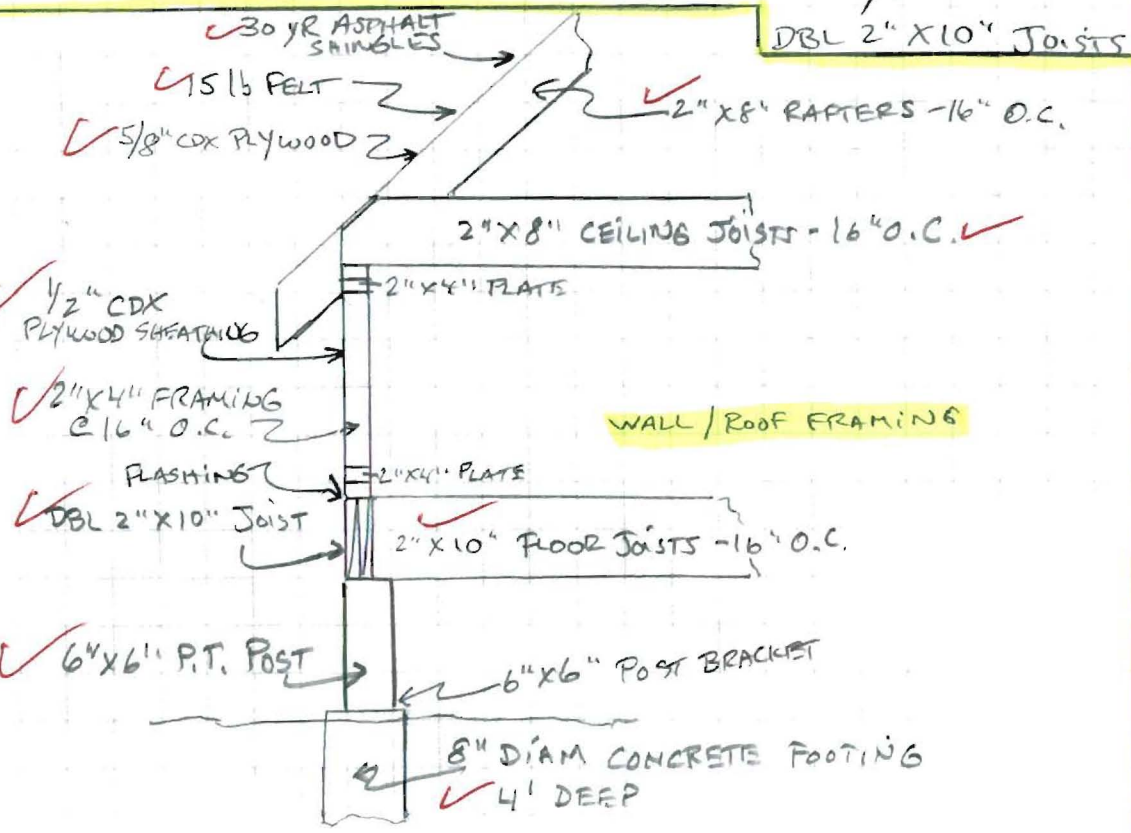 30 YR ASPHALT
SHINGLES
DBL 2" X 10" JOISTS
15 lb FELT
2" X 8" RAFTERS - 16" O.C.
5/8" CDX PLYWOOD
2" X 8" CEILING JOISTS - 16" O.C.
2" X 4" PLATE
1/2" CDX
PLYWOOD SHEATHING
2" X 4" FRAMING
@ 16" O.C.
WALL / ROOF FRAMING
FLASHING
2" X 4" PLATE
DBL 2" X 10" JOIST
2" X 10" FLOOR JOISTS - 16" O.C.
6" X 6" P.T. POST
6" X 6" POST BRACKET
8" DIAM CONCRETE FOOTING
4' DEEP